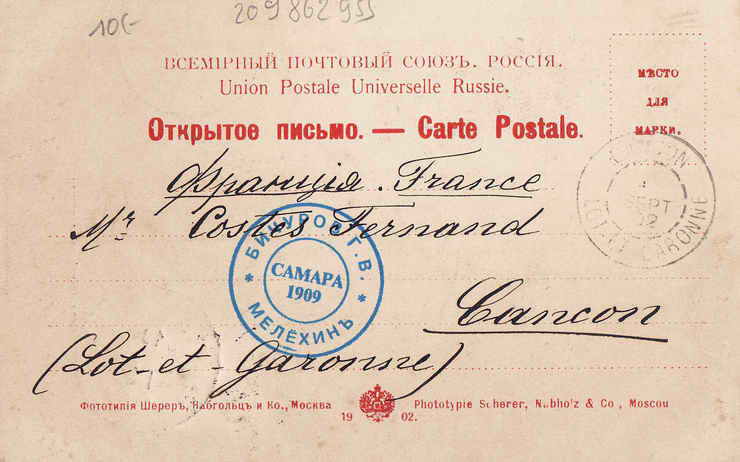 10(-
209862955
ВСЕМІРНЫЙ ПОЧТОВЫЙ СОЮЗЪ. РОССІЯ.
Union Postale Universelle Russie.
МѢСТО
ДЛЯ
МАРКИ.
Открытое письмо. — Carte Postale.
Франція. France
Mr. Costes Fernand
SEPT
02
LOT-ET-GARONNE
БИЧУРОВ Г.В.
САМАРА
1909
* МЕЛЁХИНЪ *
Cancon
(Lot-et-Garonne)
Фототипія Шереръ, Набгольцъ и Ко., Москва
1902.
Phototypie Scherer, Nabholz & Co, Moscou